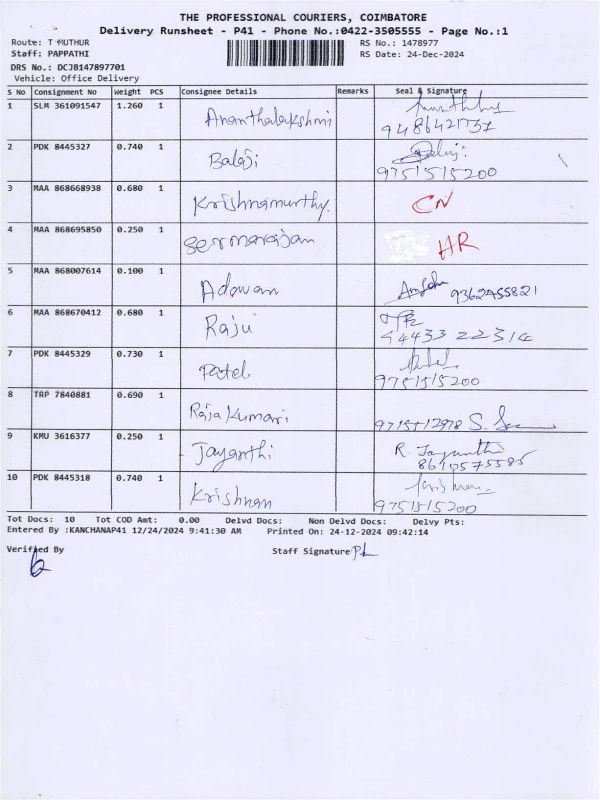 THE PROFESSIONAL COURIERS, COIMBATORE
Delivery Runsheet - P41 - Phone No.:0422-3505555 - Page No.:1
Route: T MUTHUR RS No.: 1478977
Staff: PAPPATHI RS Date: 24-Dec-2024
DRS No.: DCJB147897701
Vehicle: Office Delivery
S No Consignment No Weight PCS Consignee Details Remarks Seal & Signature
1 SLM 361091547 1.260 1 Ananthalakshmi
9486421737
2 PDK 8445327 0.740 1 Balaji
9751515200
3 MAA 868668938 0.680 1 Krishnamurthy. CN
4 MAA 868695850 0.250 1 HR
5 MAA 868007614 0.100 1 Adowan 9362455821
6 MAA 868670412 0.680 1 Raju
94433 22314
7 PDK 8445329 0.730 1 Patel
9751515200
8 TRP 7840881 0.690 1 Rajakumari
9 KMU 3616377 0.250 1 Jayanthi R. Jayanthi
10 PDK 8445318 0.740 1 Krishnan
9751515200
Tot Docs: 10 Tot COD Amt: 0.00 Delvd Docs: Non Delvd Docs: Delvy Pts:
Entered By :KANCHANAP41 12/24/2024 9:41:30 AM Printed On: 24-12-2024 09:42:14
Verified By Staff Signature